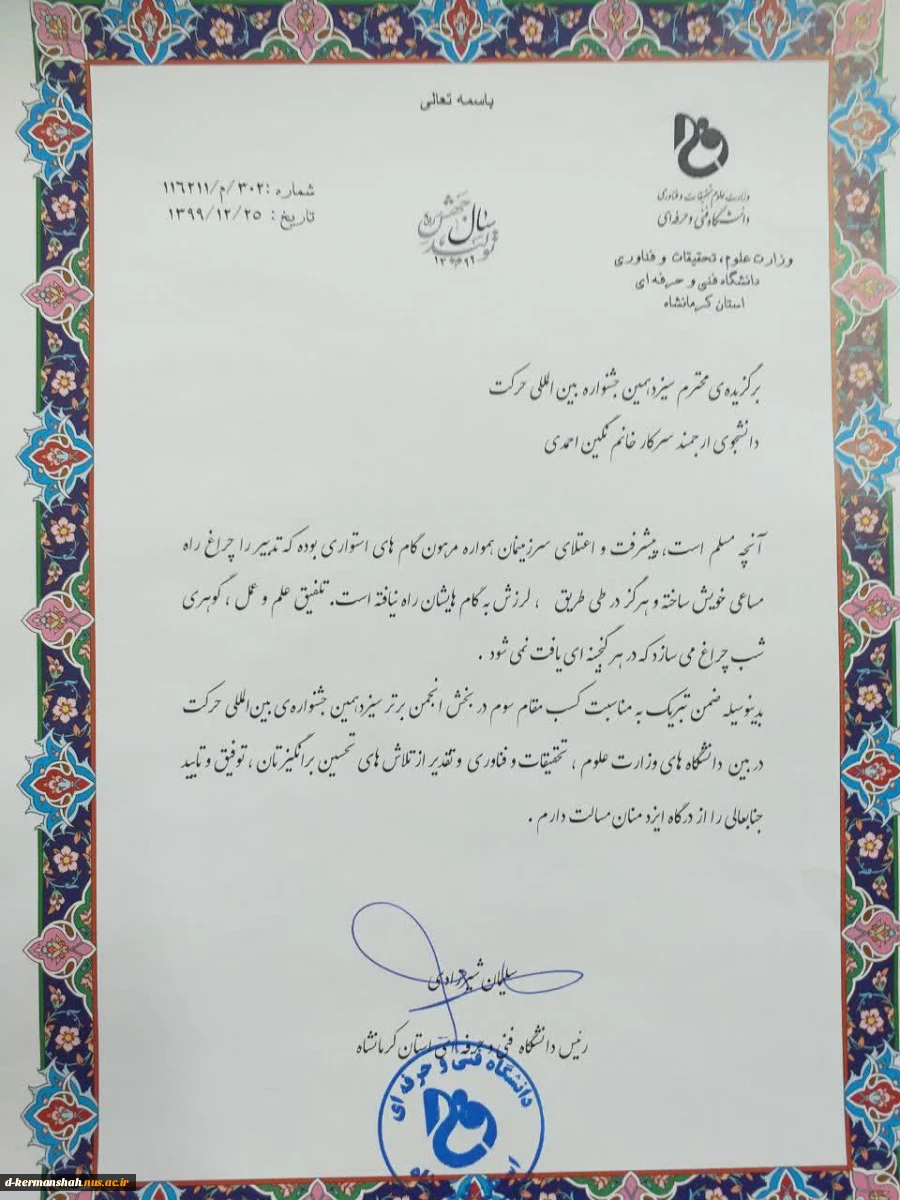 باسمه تعالی
وزارت علوم تحقیقات و فناوری
دانشگاه فنی و حرفه‌ای
شماره :۳۰۲/م/۱۱۶۲۱۱
تاریخ : ۱۳۹۹/۱۲/۲۵
سال جهش تولید
۱۳۹۹
وزارت علوم، تحقیقات و فناوری
دانشگاه فنی و حرفه ای
استان کرمانشاه
برگزیده‌ی محترم سیزدهمین جشنواره بین المللی حرکت
دانشجوی ارجمند سرکار خانم نگین احمدی
آنچه مسلم است، پیشرفت و اعتلای سرزمینمان همواره مرهون گام های استواری بوده که تدبیر را چراغ راه
مساعی خویش ساخته و هرگز در طی طریق ، لرزش به گام هایشان راه نیافته است. تلفیق علم و عمل ، گوهری
شب چراغ می سازد که در هر گنجینه ای یافت نمی شود .
بدینوسیله ضمن تبریک به مناسبت کسب مقام سوم در بخش انجمن برتر سیزدهمین جشنواره‌ی بین‌المللی حرکت
در بین دانشگاه های وزارت علوم ، تحقیقات و فناوری و تقدیر از تلاش های تحسین برانگیزتان ، توفیق و تایید
جنابعالی را از درگاه ایزد منان مسالت دارم .
سلیمان شیرزادی
رئیس دانشگاه فنی و حرفه ای استان کرمانشاه
دانشگاه فنی و حرفه ای
d-kermanshah.nus.ac.ir